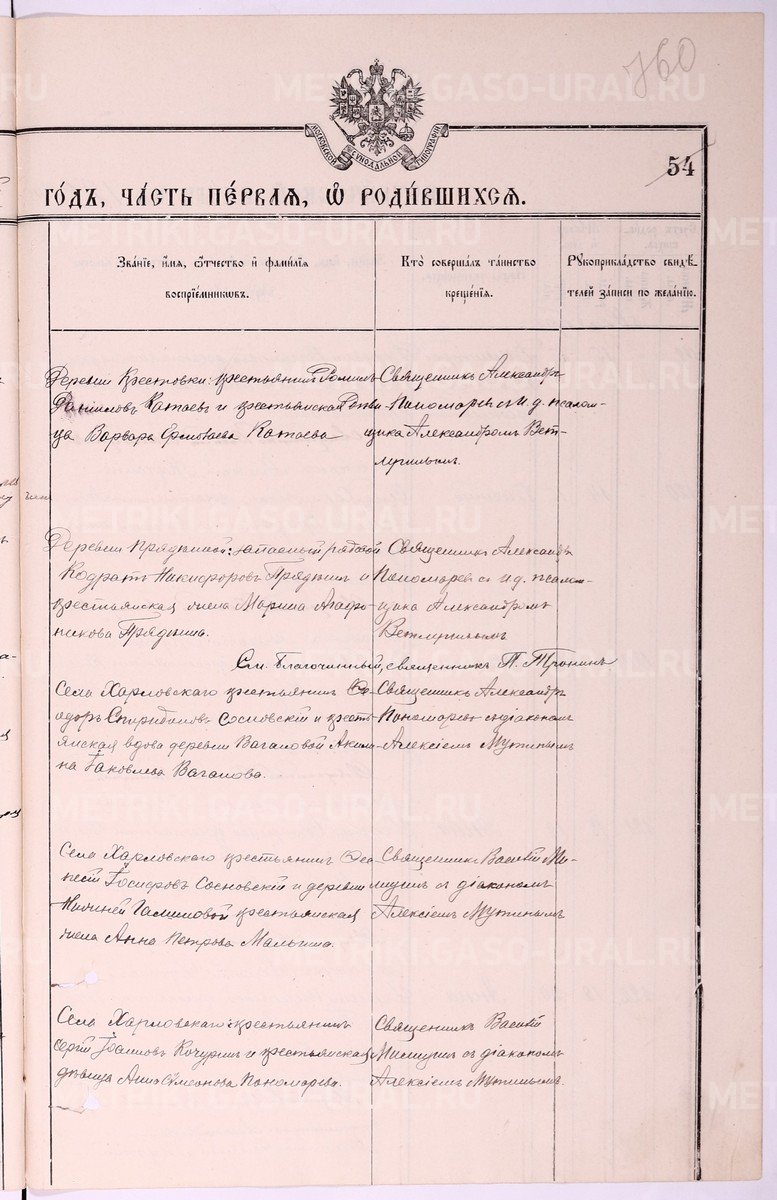 760
МОСКОВСКОЙ СѴНОДАЛЬНОЙ ТИПОГРАФІИ
54
ГО́ДЪ, ЧА́СТЬ ПЕ́РВАЯ, Ѿ РОДИ́ВШИХСЯ.
Зва́нїе, и҆́мя, ѻ҆́тчество и҆ фами́лїя
воспрїе́мникѡвъ.
Кто̀ соверша́лъ та́инство
креще́нїя.
Рꙋкоприкла́дство свидѣ́-
телей за́писи по жела́нїю.
Деревни Крестовки: крестьянинъ
Даниловъ Катаевъ и крестьянская деви-
ца Варвара Ермолаева Катаева
Священникъ Александръ
Пономаревъ с и. д. псалом-
щика Александромъ Вет-
лугинымъ.
Деревни Прядкиной: запасный рядовой
Кодратъ Никифоровъ Прядкинъ и
крестьянская жена Марина Агафо-
никова Прядкина.
Священникъ Александръ
Пономаревъ с и. д. псалом-
щика Александромъ
Ветлугинымъ
См. Благочинный, священникъ П. Тронинъ
Села Харловскаго крестьянинъ Ѳе-
одоръ Спиридоновъ Сосновскій и кресть-
янская вдова деревни Вагановой Акили-
на Іаковлева Ваганова.
Священникъ Александръ
Пономаревъ с діакономъ
Алексіемъ Мутинымъ
Села Харловскаго крестьянинъ
Іосифовъ Сосновскій и деревни
Нижней крестьянская
жена Анна Петрова Малыгина.
Священникъ Василій Ми-
с діакономъ
Алексіемъ Мутинымъ
Села Харловскаго: крестьянинъ
Сергій Іоанновъ Кочуринъ и крестьянская
дѣвица Анна Симеонова Пономарева.
Священникъ Василій
с діакономъ
Алексіемъ Мутинымъ.
METRIKI.GASO-URAL.RU
METRIKI.GASO-URAL.RU
METRIKI.GASO-URAL.RU
METRIKI.GASO-URAL.RU
METRIKI.GASO-URAL.RU